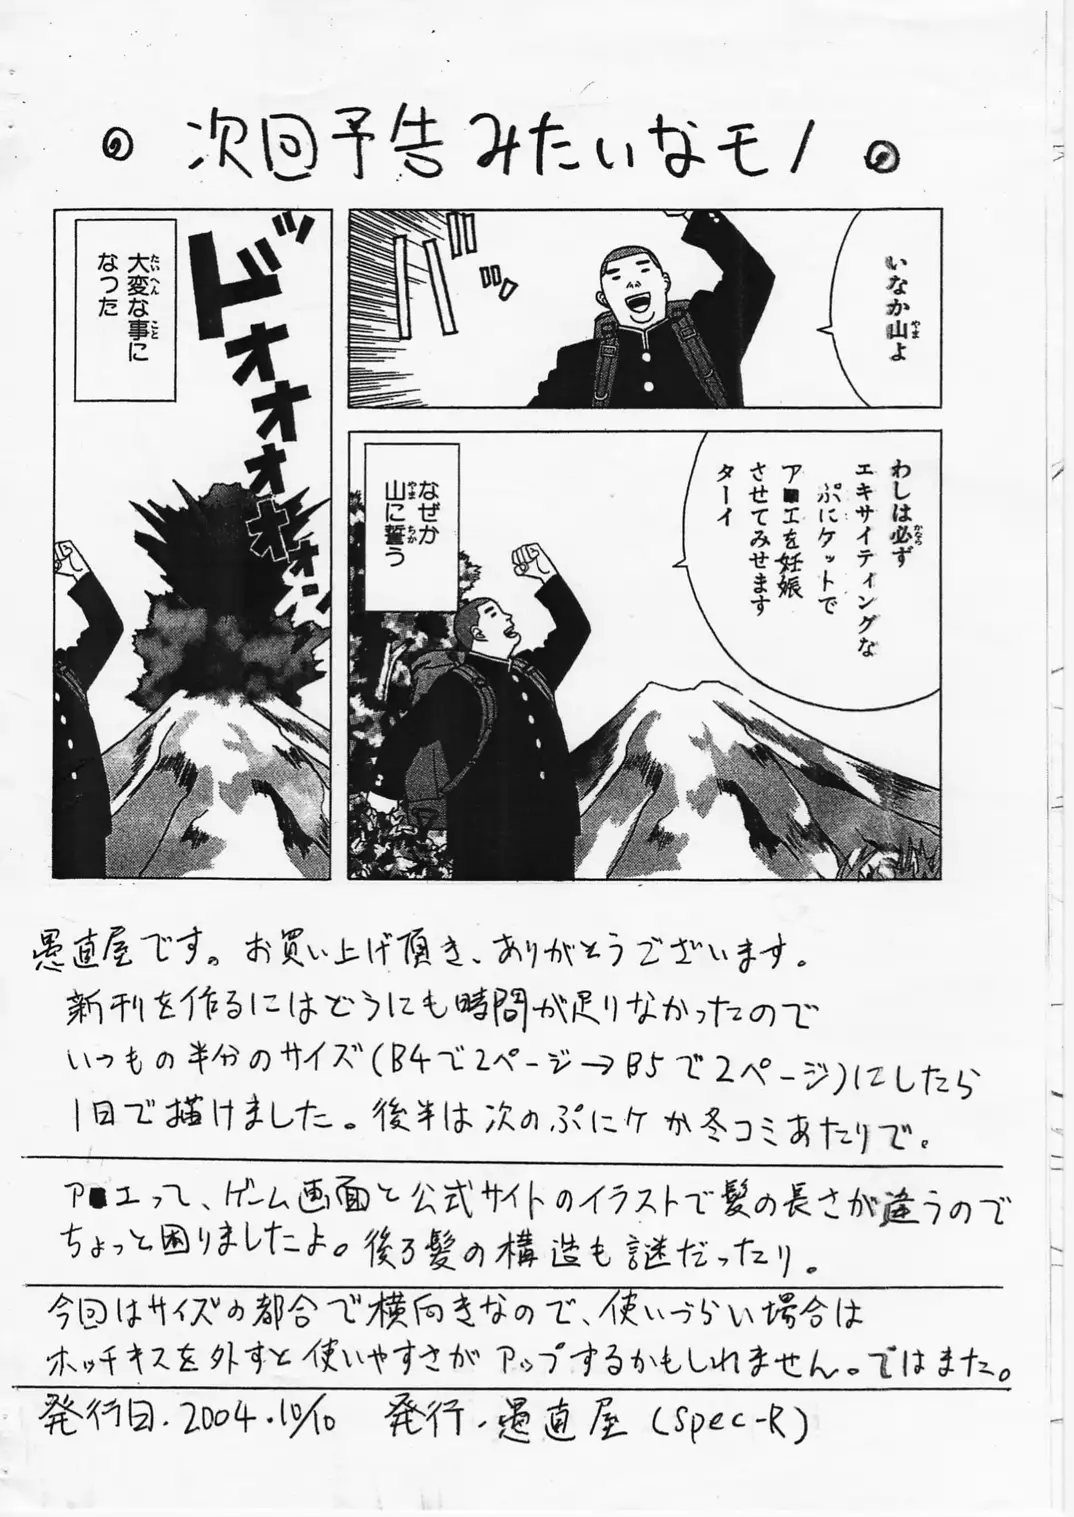 次回予告みたいなモノ
いなか山よ
バッ
わしは必ず
エキサイティングな
ぷにケットで
ア■エを妊娠
させてみせます
ターイ
なぜか
山に誓う
ドッ
ドォオオオオオォン
大変な事に
なった
愚直屋です。お買い上げ頂き、ありがとうございます。
新刊を作るにはどうにも時間が足りなかったので
いつもの半分のサイズ(B4で2ページ→B5で2ページ)にしたら
1日で描けました。後半は次のぷにケか冬コミあたりで。
ア■エって、ゲーム画面と公式サイトのイラストで髪の長さが違うので
ちょっと困りましたよ。後ろ髪の構造も謎だったり。
今回はサイズの都合で横向きなので、使いづらい場合は
ホッチキスを外すと使いやすさがアップするかもしれません。ではまた。
発行日.2004.10/10 発行.愚直屋(Spec-R)